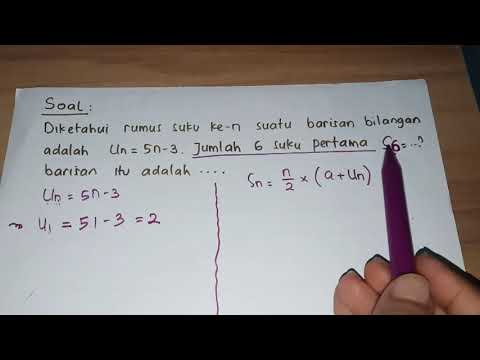 Soal :
Diketahui rumus suku ke-n suatu barisan bilangan
adalah Un = 5n-3. Jumlah 6 suku pertama S6 = ...?
barisan itu adalah ....
Un = 5n-3
Sn = n/2 × (a + Un)
→ U1 = 51 - 3 = 2